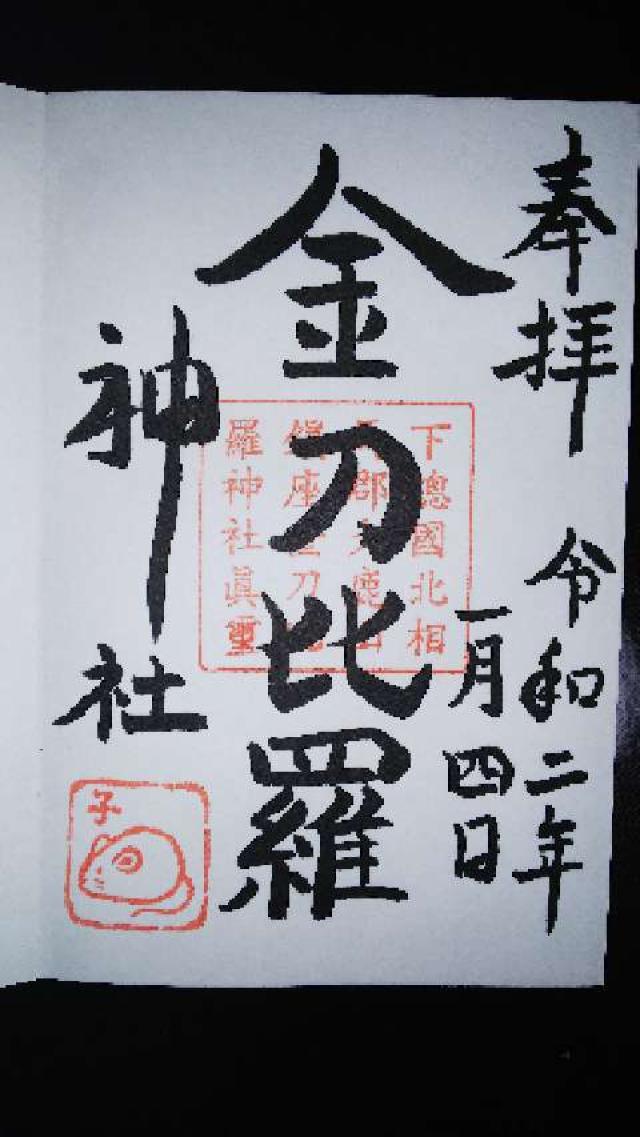 奉拝
令和二年
一月四日
金刀比羅
神社
下總國北相
馬郡大鹿山
鎮座金刀比
羅神社眞璽
子